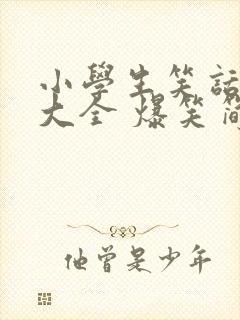 小學生笑話
大全 爆笑簡
他曾是少年